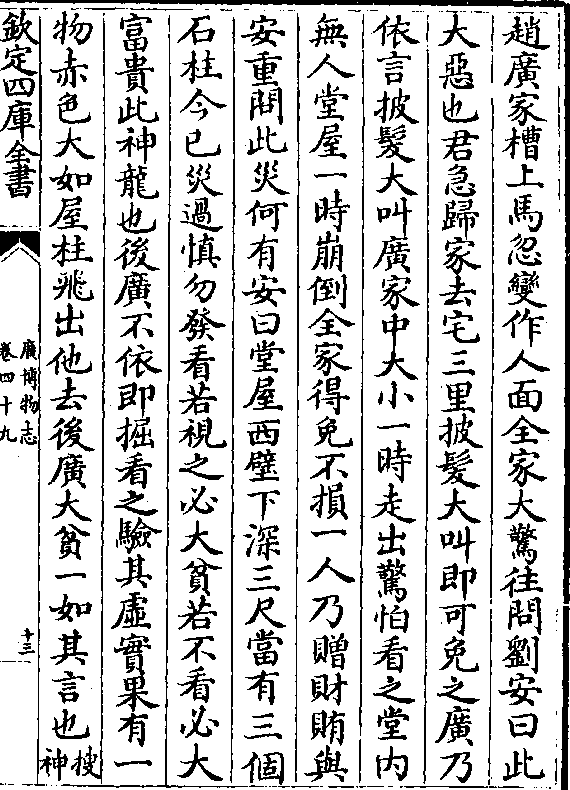 趙廣家槽上馬忽變作人面全家大驚往問劉安曰此
大惡也君急歸家去宅三里披髮大叫即可免之廣乃
依言披髮大叫廣家中大小一時走出驚怕看之堂内
無人堂屋一時崩倒全家得免不損一人乃贈財賄與
安重問此災何有安曰堂屋西壁下深三尺當有三個
石柱今已災過慎勿發看若視之必大貧若不看必大
富貴此神龍也後廣不依即掘看之驗其虛實果有一
物赤色大如屋柱飛出他去後廣大貧一如其言也搜
神
欽定四庫全書
廣博物志
卷四十九
十三